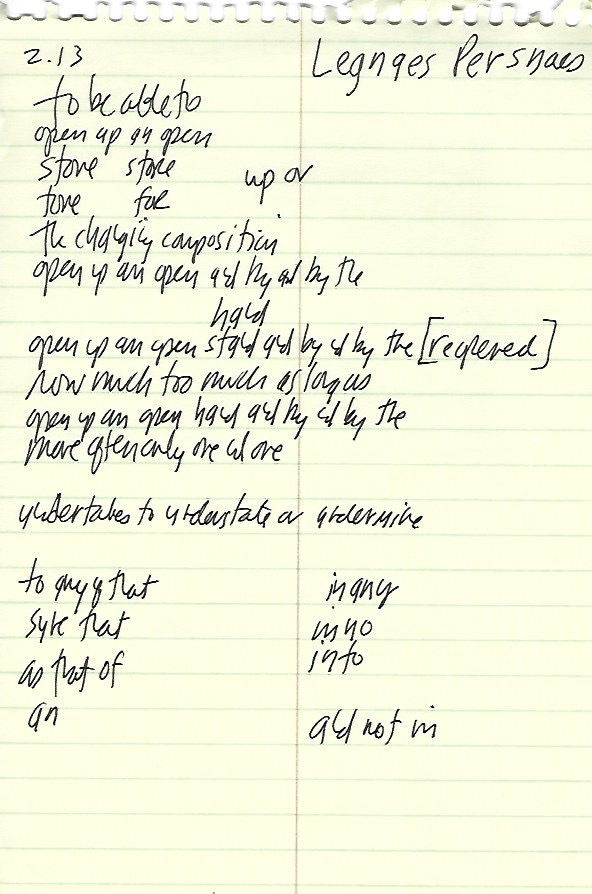 2.13 Legnges Persnaes
to be able to
open up an open
stone stone
up or
tone for
the changing composition
open up an open and by and by the
hand
open up an open stand and by and by the [reqiered]
how much too much as long as
open up an open hand and by and by the
more often only one and one
undertakes to understate or undermine
to any of that in any
syre that in no
as that of into
an
and not in